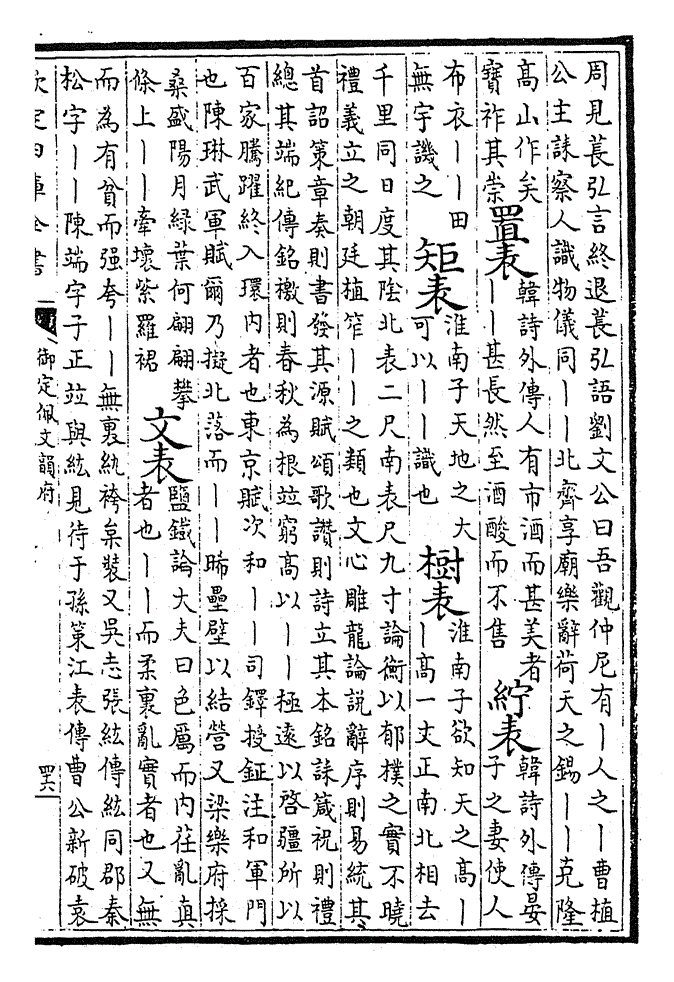 周見萇弘言終退萇弘語劉文公曰吾觀仲尼有丨人之丨曹植
公主誄察人識物儀同丨丨北齊享廟樂辭荷天之錫丨丨克隆
高山作矣
寶祚其崇
置表
韓詩外傳人有市酒而甚美者
丨丨甚長然至酒酸而不售
紵表
韓詩外傳晏
子之妻使人
布衣丨丨田
無宇譏之
矩表
淮南子天地之大
可以丨丨識也
樹表
淮南子欲知天之高丨
丨高一丈正南北相去
千里同日度其陰北表二尺南表尺九寸論衡以郁樸之實不曉
禮義立之朝廷植笮丨丨之類也文心雕龍論說辭序則易統其
首詔策章奏則書發其源賦頌歌讚則詩立其本銘誄箴祝則禮
總其端紀傳銘檄則春秋為根竝窮高以丨丨極遠以啓疆所以
百家騰躍終入環內者也東京賦次和丨丨司鐸授鉦注和軍門
也陳琳武軍賦爾乃擬北落而丨丨晞壘壁以結營又梁樂府採
桑盛陽月綠葉何翩翩攀
條上丨丨牽壞紫羅裙
文表
鹽鐵論大夫曰色厲而內荏亂真
者也丨丨而柔裏亂實者也又無
而為有貧而强夸丨丨無裏紈袴枲裝又吳志張紘傳紘同郡秦
松字丨丨陳端字子正竝與紘見待于孫策江表傳曹公新破袁
欽定四庫全書
御定佩文韻府
四六